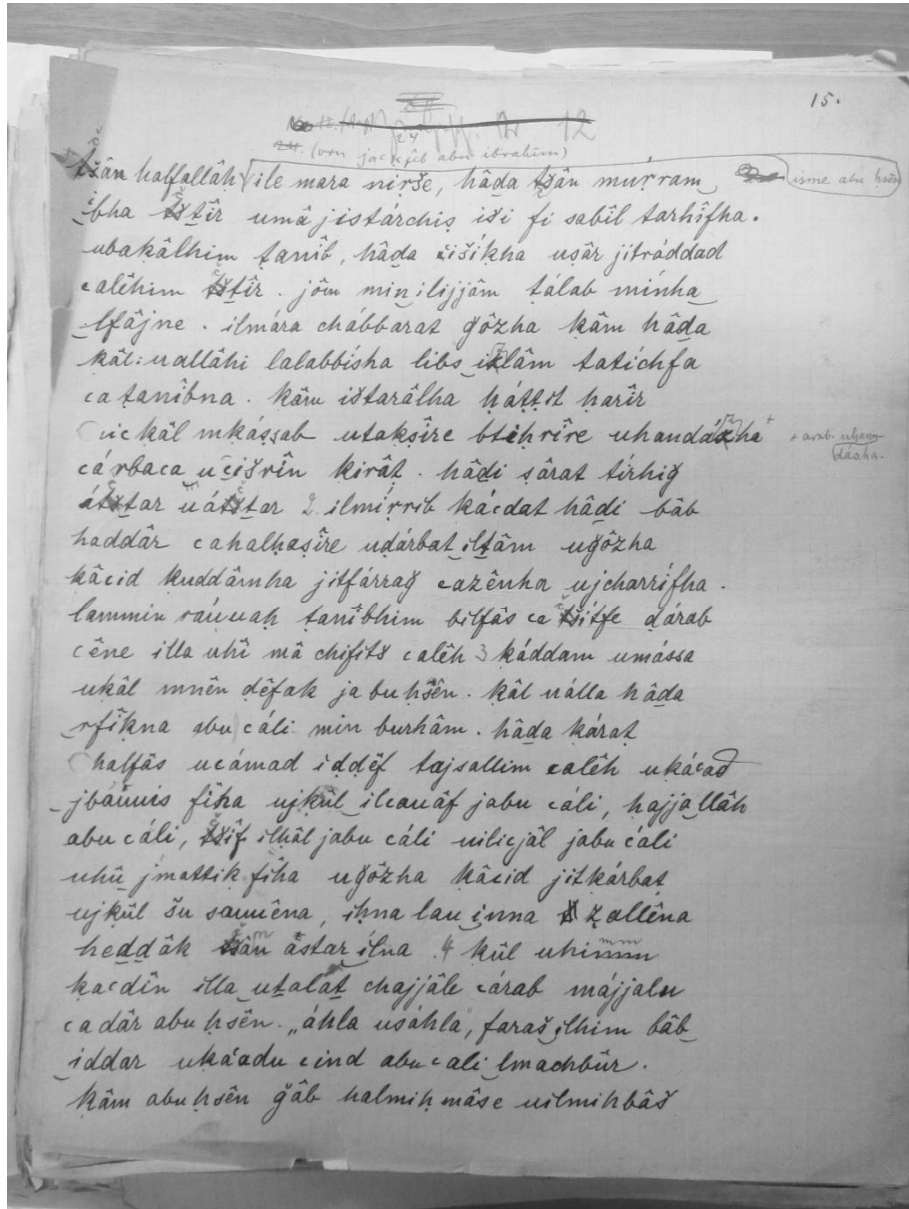 15.
12
24. (von jackûb abu ibrahîm)
čân halfallâh ile mara nirše, hâḏa čân muṛram isme abu ḥsên
ibha čṯîr umâ jistárchiṣ iši fi sabîl tarhîfha.
ubakâlhim ṭanîb, hâḏa čišíkha uṣâr jitráddad
calêhim čṯîr. jôm min ilijjâm ṭálab mínha
lfâjne. ilmára chábbarat ǧôzha kâm hâḏa
kâl: uallâhi lalabbísha libs izlâm tatíchfa
ca ṭanîbna. kâm ištarâlha ḥáṭṭit ḥarîr
uickâl mkáṣṣab utakṣîre btiḥrîre uhandázha +
+ arab. uhandâsha.
cárbaca ucišrîn kirâṭ. hâḏi ṣârat tírhiǧ
áčṯar uáčṯar 2 ilmíṛrib kácdat hâḏi bâb
haddâr cahalḥaṣîre uḍárbat ilṯâm uǧôzha
kâcid kuddâmha jitfárraǧ cazênha ujcharrífha.
lammin ráuuaḥ ṭanîbhim bilfâs ca čítfe ḍárab
cêne illa uhî mâ chifitš calêh 3 káddam umássa
ukâl mnên ḍêfak ja bu ḥsên. kâl uálla hâḏa
rfîkna abu cáli min burhâm. hâḏa kárat
halfâs ucámad iḍḍêf tajsallim calêh ukácad
jbáuuis fîha ujkûl ilcauâf jabu cáli, ḥajjallâh
abu cáli, čîf ilḥâl jabu cáli uilicjâl jabu cáli
uhû jmattik fîha uǧôzha kâcid jitkárbaṭ
ujkûl šu sauuêna, iḥna lau inna ẓallêna
heḏḏâk čân ástar ilna. 4 kûl uhimm
kacdîn illa uṯalâṯ chajjâle cárab májjalu
ca dâr abu ḥsên. „áhla usáhla, faraš ilhim bâb
iddar ukácadu cind abu cali lmachbûr.
kâm abu ḥsên ǧâb halmiḥmâse uilmihbâš